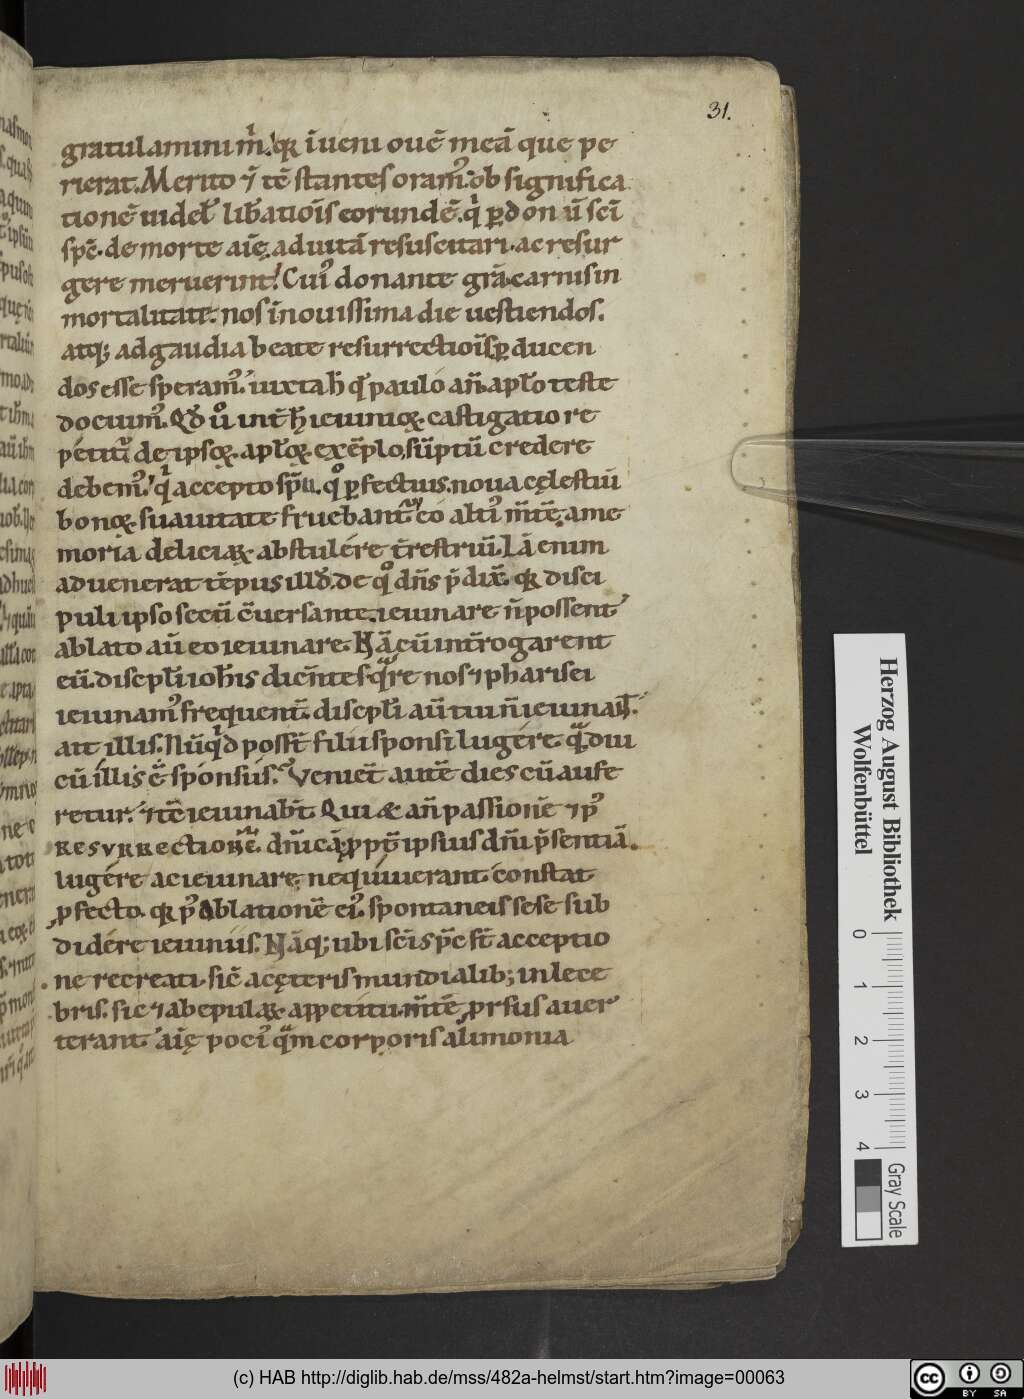 31.
gratulamini m̄ı. qꝛ īueni ouē meā que pe
rierat. Merito ⁊ tē stantes oram᷒. ob significa
tionē uidel̄ libatiōıs eorundē. qͥ ꝑ donū scī
spc̄. de morte aīę. ad uitā resuscitari. ac resur
gere meruerunt. Cuı᷒ donante grā. carnis in
mortalitate. nos ī nouissima die uestiendos.
atq; ad gaudia beate resurrectioīs ꝑducen
dos esse speram᷒. iuxta h̄ qđ paulo an̄. apłō teste
docuim᷒. Qđ ů int̄ h̄ ieiunioꝝ castigatio re
petiti de ipsoꝝ. apłoꝝ. exēplo, sūptū credere
debem᷒. qͥ accepto spū. qͦ ꝑfectius. noua cęlestiū
bonoꝝ. suauitate fruebant᷑. eo alti᷒ m̄tē. a me
moria deliciaꝝ. abstulére t̄restriū. Iā enim
aduenerat tēpus illđ. de qͦ dn̄s p̄dix̄. qꝛ disci
puli ipso secū c̄uersante. ieiunare n̄ possent
ablato aū eo ieiunare. Nā cū int̄rogarent
eū. discipłi ioh̄is dicn̄tes. qͣre nos ⁊ pharisei
ieiunam᷒ frequent̄. discipłi aū tui n̄ ieiunāt.
ait illis. Nūqͥd poss̄t filii sponsi lugére. qͣdiu
cū illis ē sponsus. Venien̄t autē dies cū aufe
retur. ⁊ tc̄ ieiunab̄t. Qui & an̄ passionē ⁊ p᷒
resurrectionē. dn̄icā. ꝓpt̄ ipsius dn̄i p̄sentiā.
lugére ac ieiunare. nequiuerant. constat
ꝓfecto. qꝛ p᷒ ablationē ei᷒. spontaneis sese sub
didére ieiuniis. Nāq; ubi scīs pc̄ s̄t acceptio
ne recreati. sic̄ a cęteris mundialib; inlece
bris. sic ⁊ ab epulaꝝ. appetitu. m̄tē ꝓrsus auer
terant. aīę poci᷒ qͣm corporis alimonia
Herzog August Bibliothek
Wolfenbüttel
0
1
2
3
4
Gray Scale
(c) HAB http://diglib.hab.de/mss/482a-helmst/start.htm?image=00063
cc BY SA